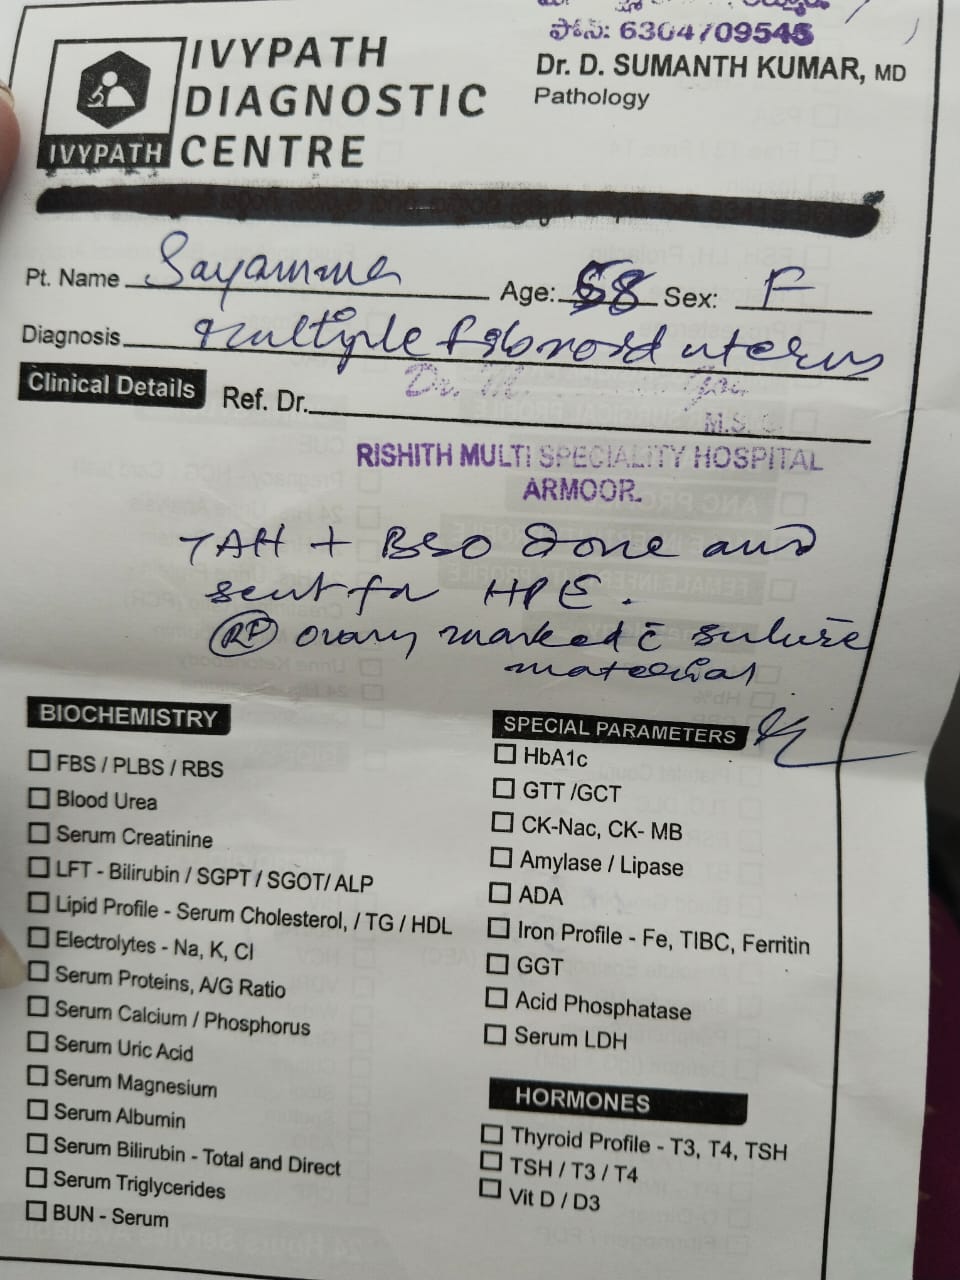 ఫోన్: 6304709545
IVYPATH
DIAGNOSTIC
CENTRE
IVYPATH
Dr. D. SUMANTH KUMAR, MD
Pathology
Pt. Name Sayamma Age: 58 Sex: F
Diagnosis Multiple fibroid uterus
Clinical Details Ref. Dr. Dr. M.
M.S.
RISHITH MULTI SPECIALITY HOSPITAL
ARMOOR.
TAH + BSO done and
sent for HPE.
Rt ovary marked c̄ suture
material
BIOCHEMISTRY
FBS / PLBS / RBS
Blood Urea
Serum Creatinine
LFT - Bilirubin / SGPT / SGOT/ ALP
Lipid Profile - Serum Cholesterol, / TG / HDL
Electrolytes - Na, K, Cl
Serum Proteins, A/G Ratio
Serum Calcium / Phosphorus
Serum Uric Acid
Serum Magnesium
Serum Albumin
Serum Bilirubin - Total and Direct
Serum Triglycerides
BUN - Serum
SPECIAL PARAMETERS
HbA1c
GTT /GCT
CK-Nac, CK- MB
Amylase / Lipase
ADA
Iron Profile - Fe, TIBC, Ferritin
GGT
Acid Phosphatase
Serum LDH
HORMONES
Thyroid Profile - T3, T4, TSH
TSH / T3 / T4
Vit D / D3